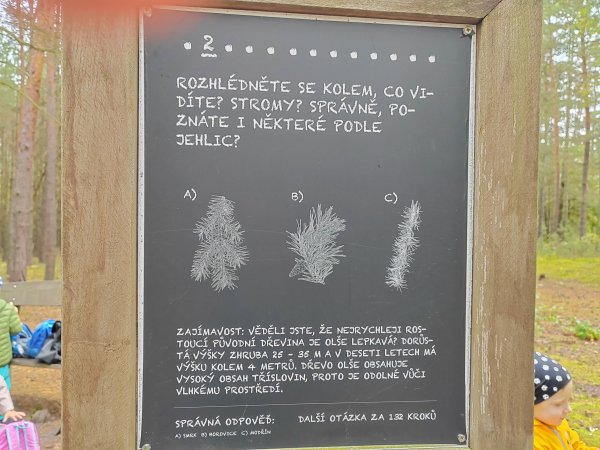 2
ROZHLÉDNĚTE SE KOLEM, CO VI-
DÍTE? STROMY? SPRÁVNĚ, PO-
ZNÁTE I NĚKTERÉ PODLE
JEHLIC?
A) B) C)
ZAJÍMAVOST: VĚDĚLI JSTE, ŽE NEJRYCHLEJI ROS-
TOUCÍ PŮVODNÍ DŘEVINA JE OLŠE LEPKAVÁ? DORŮS-
TÁ VÝŠKY ZHRUBA 25 - 35 M A V DESETI LETECH MÁ
VÝŠKU KOLEM 4 METRŮ. DŘEVO OLŠE OBSAHUJE
VYSOKÝ OBSAH TŘÍSLOVIN, PROTO JE ODOLNÉ VŮČI
VLHKÉMU PROSTŘEDÍ.
SPRÁVNÁ ODPOVĚĎ: DALŠÍ OTÁZKA ZA 132 KROKŮ
A) SMRK B) BOROVICE C) MODŘÍN